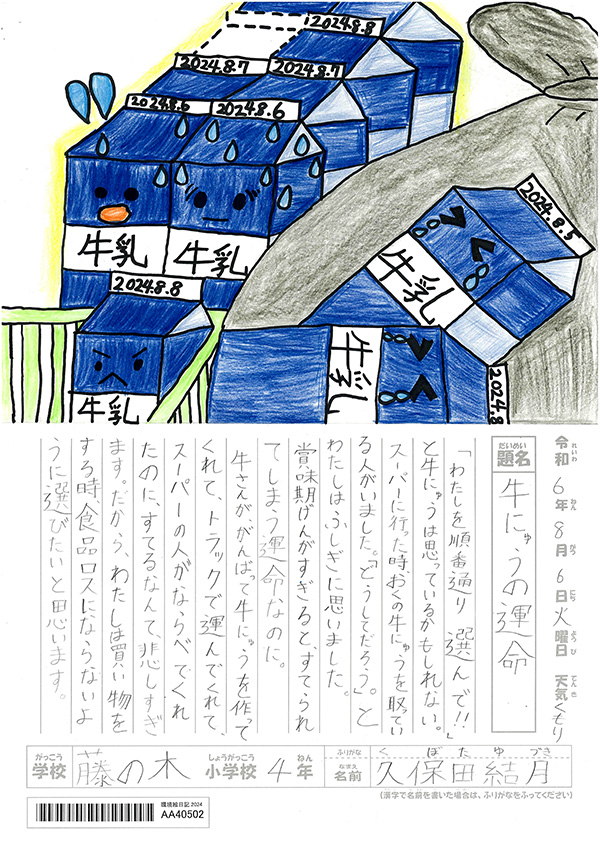 2024.8.8
2024.8.7
2024.8.7
2024.8.6
2024.8.6
牛乳
牛乳
2024.8.8
牛乳
2024.8.5
牛乳
牛乳
2024.8
令和6年8月6日火曜日 天気くもり
れいわ ねん がつ にち ようび てんき
だいめい
題名
牛にゅうの運命
「わたしを順番通り選んで!!」
と牛にゅうは思っているかもしれない。
スーパーに行った時、おくの牛にゅうを取ってい
る人がいました。「どうしてだろう。」と
わたしはふしぎに思いました。
賞味期げんがすぎると、すてられ
てしまう運命なのに。
牛さんが、がんばって牛にゅうを作って
くれて、トラックで運んでくれて、
スーパーの人がならべてくれ
たのに、すてるなんて、悲しすぎ
ます。だから、わたしは買い物を
する時、食品ロスにならないよ
うに選びたいと思います。
がっこう しょうがっこう ねん
学校 藤の木 小学校 4年
ふりがな くぼた ゆづき
なまえ
名前 久保田結月
(漢字で名前を書いた場合は、ふりがなをふってください)
環境絵日記 2024
AA40502